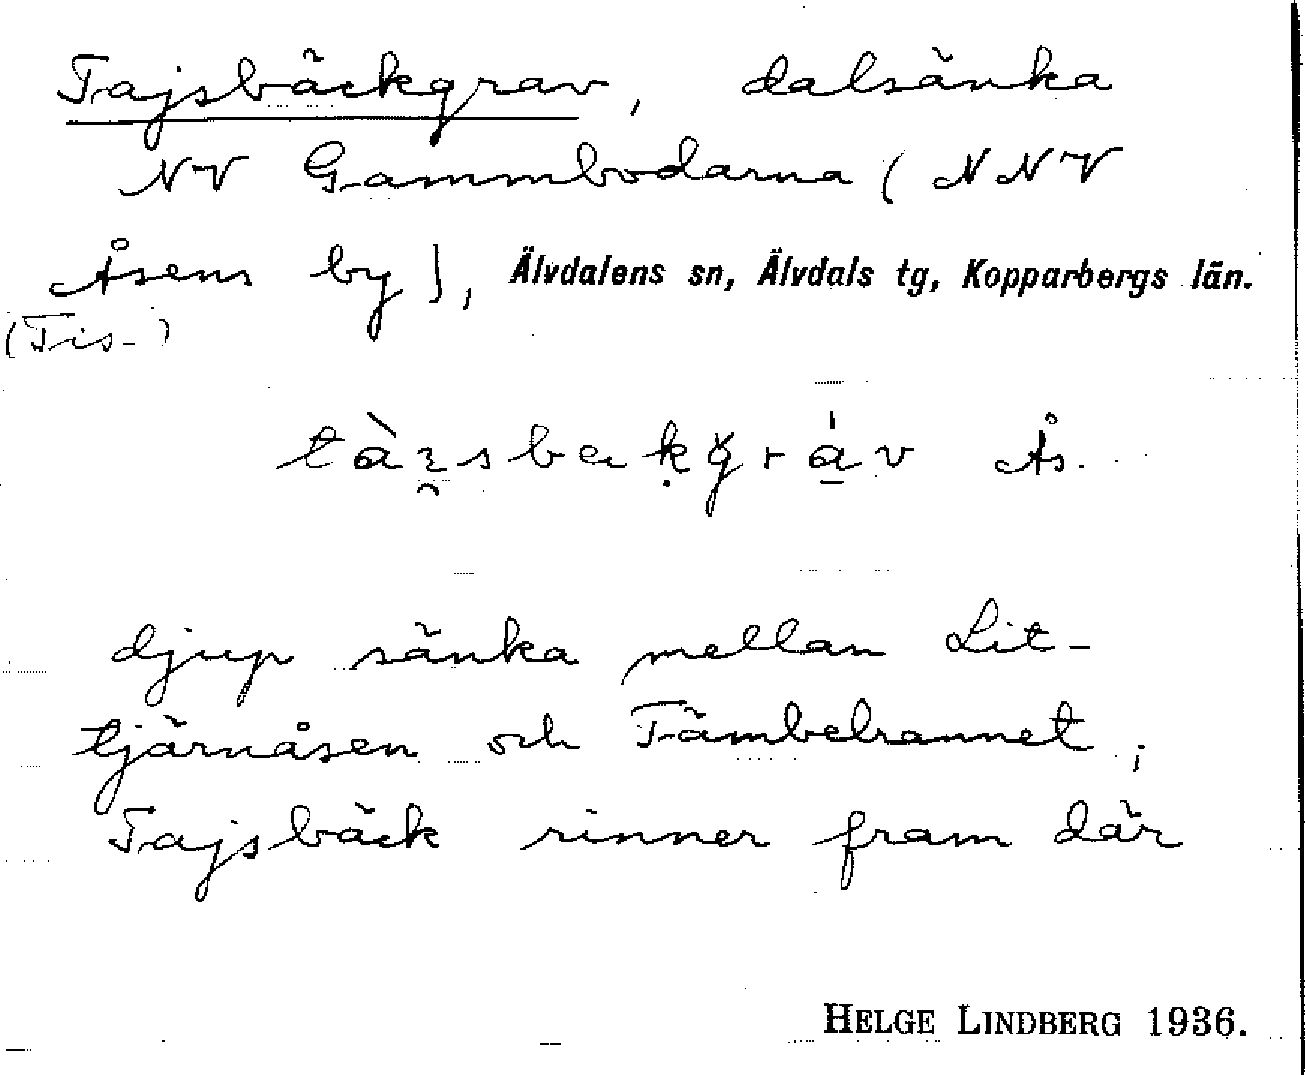 Tajsbäckgrav, dalsänka
NV Gammbodarna (NNV
Åsens by), Älvdalens sn, Älvdals tg, Kopparbergs län.
(Tis-)
Ås.
djup sänka mellan Lit-
tjärnåsen och Tämbelrannet;
Tajsbäck rinner fram där
HELGE LINDBERG 1936.